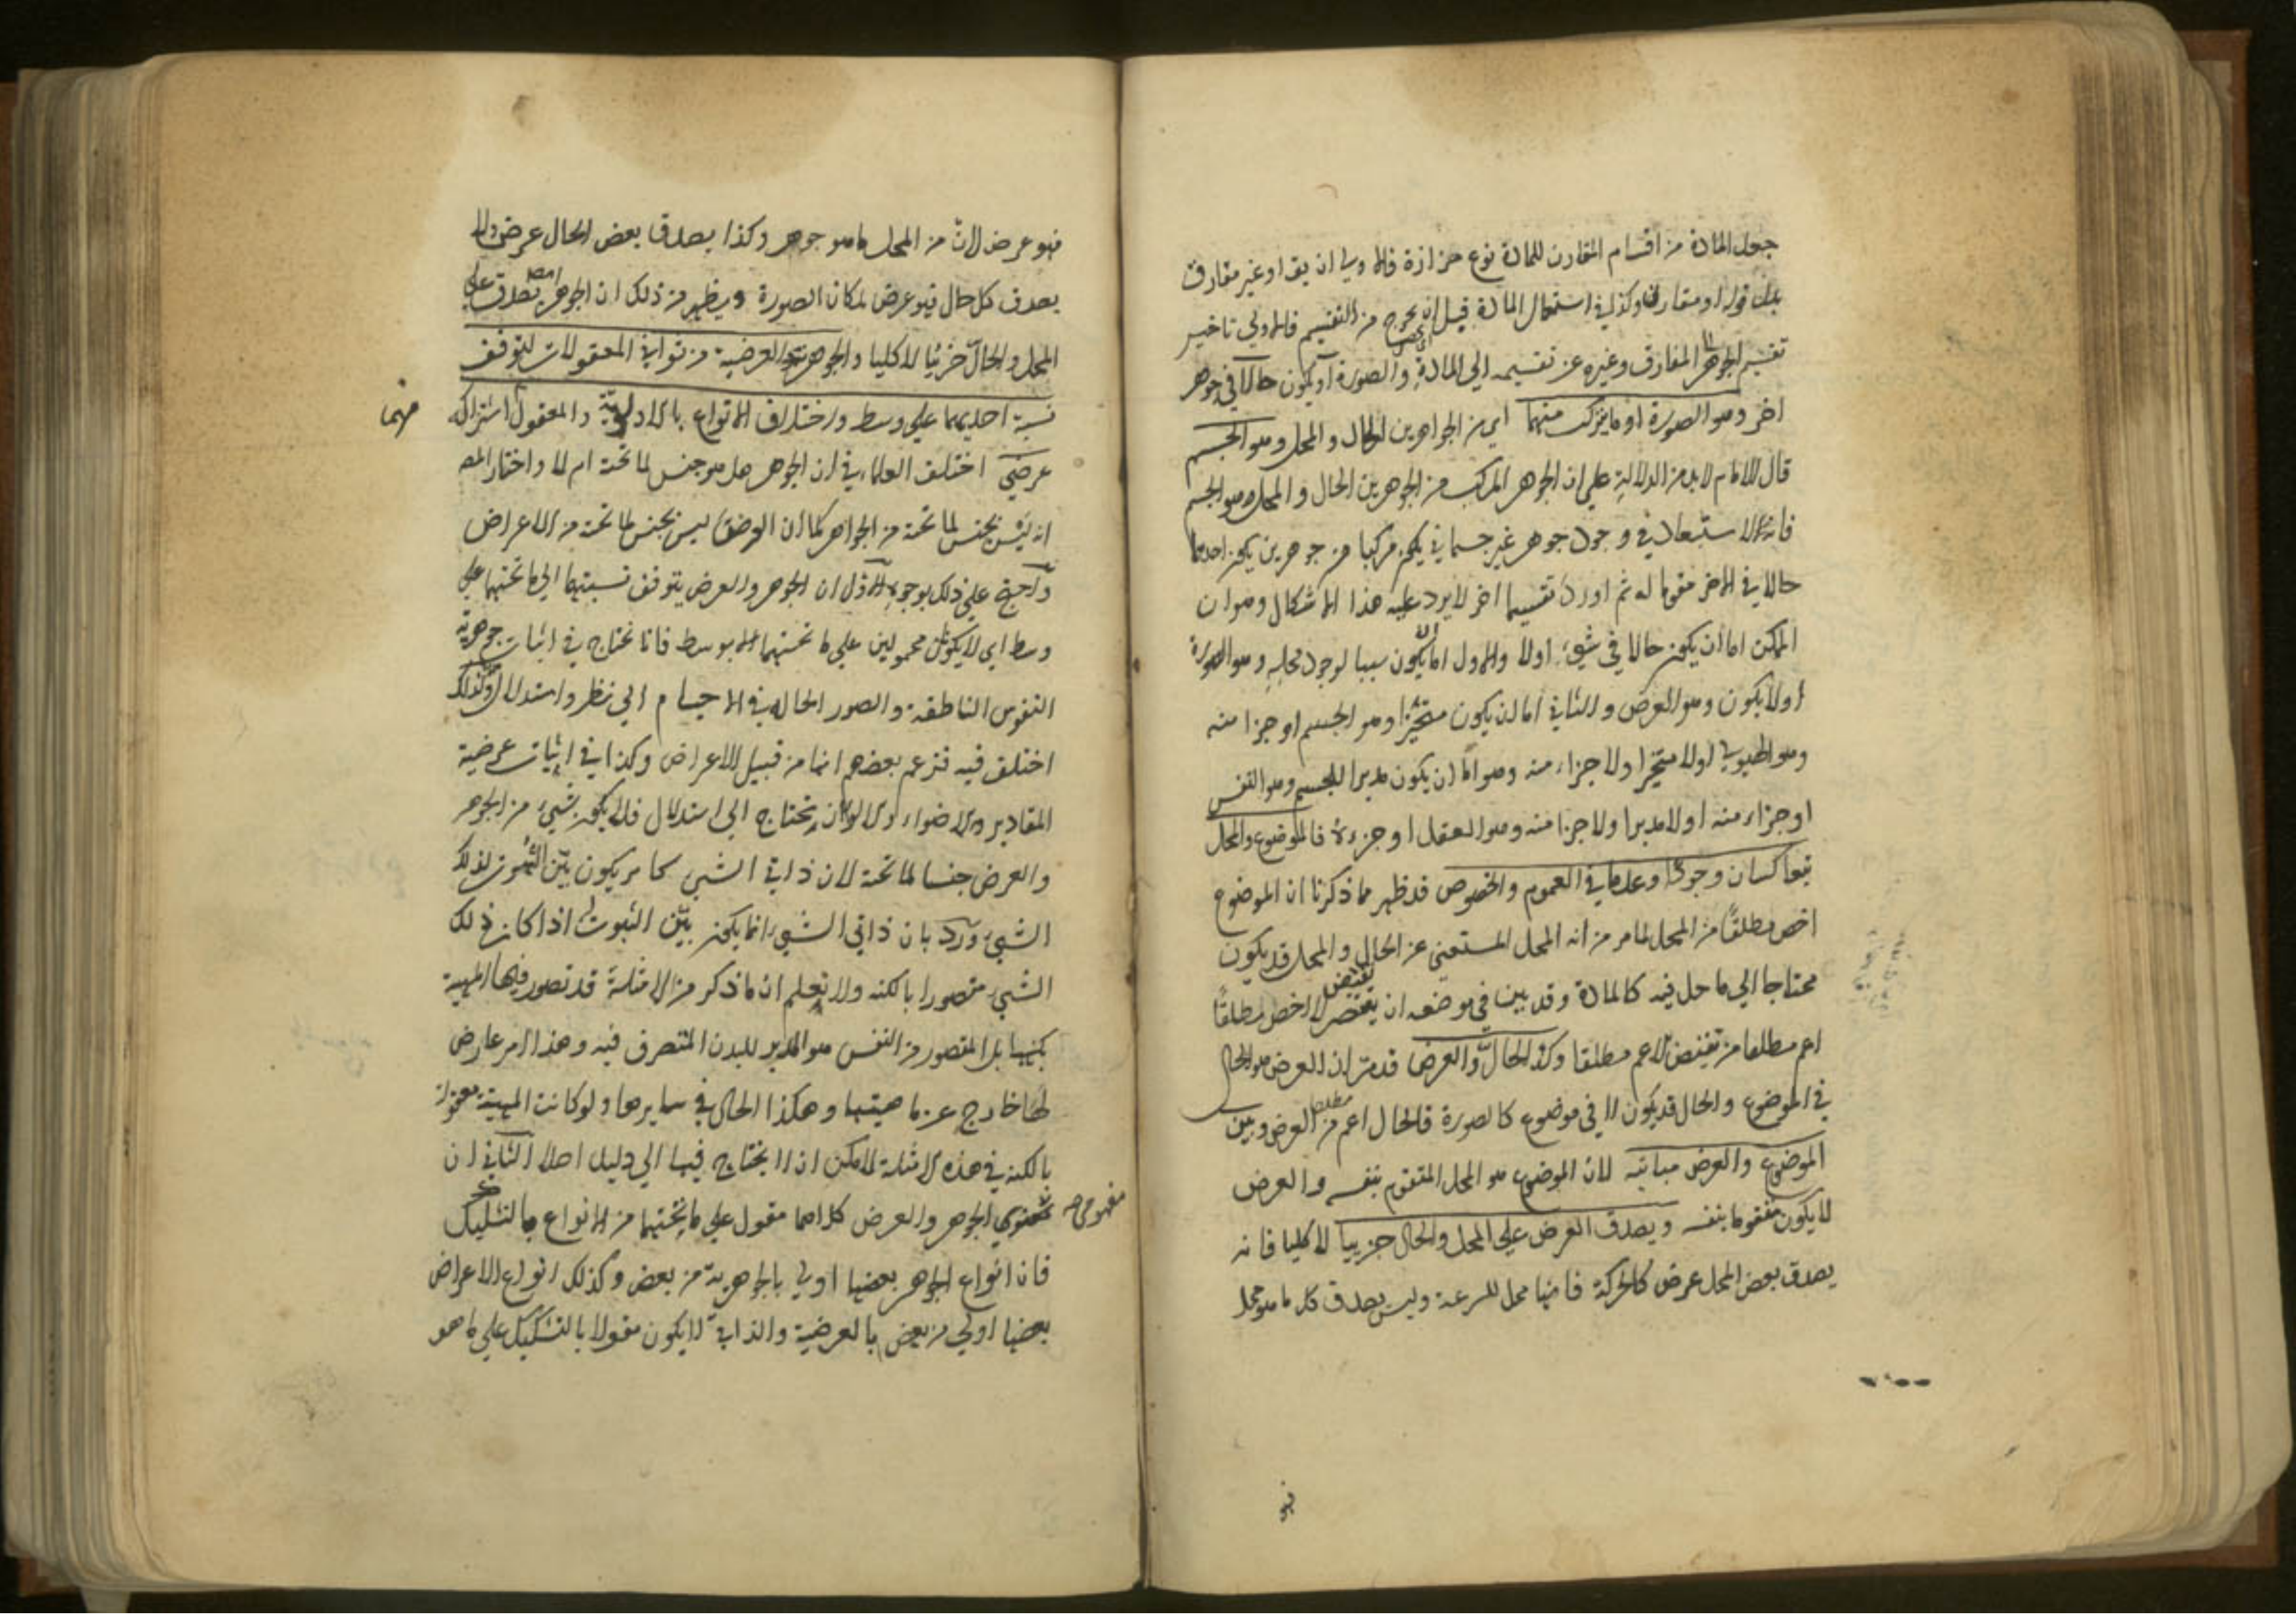 جعل المادة من اقسام المقارن للمادة نوع حزازة فالاولى ان يقا او غير مفارق
بدل قوله او مقارن وكذا في استعمال المادة قبل ان يخرج من التقسيم فالاولى تاخير
تقسيم الجوهر الى المفارق وغيره عن تقسيمه الى المادة والصورة او يكون حالا في جوهر
اخر وهو الصورة او ما يتركب منهما اي من الجوهرين الحال والمحل وهو الجسم
قال الامام لابد من الدلالة على ان الجوهر المركب من الجوهرين الحال والمحل هو الجسم
فانه لا استبعاد في وجود جوهر غير جسماني يكون مركبا من جوهرين يكون احدهما
حالا في الاخر مقوما له ثم اورد تقسيما اخر لا يرد عليه هذا الاشكال وهو ان
الممكن اما ان يكون حالا في شيء اولا والاول اما ان يكون سببا لوجود محله وهو الصورة
اولا يكون وهو العرض والثاني اما ان يكون متحيزا وهو الجسم او جزا منه
وهو الهيولى اولا متحيزا ولا جزاء منه وهو اما ان يكون مدبرا للجسم وهو النفس
او جزاء منه اولا مدبرا ولا جزا منه وهو العقل او جزءه فالموضوع والمحل
يتعاكسان وجودا وعدما في العموم والخصوص قد ظهر مما ذكرنا ان الموضوع
اخص مطلقا من المحل لما مر من انه المحل المستغني عن الحال والمحل قد يكون
محتاجا الى ما حل فيه كالمادة وقد بين في موضعه ان نقيض الاخص مطلقا
اعم مطلقا من نقيض الاعم مطلقا وكذا الحال والعرض قد مر ان العرض هو الحال
في الموضوع والحال قد يكون لا في موضوع كالصورة فالحال اعم مطلقا من العرض وبين
الموضوع والعرض مباينة لان الموضوع هو المحل المتقوم بنفسه والعرض
لا يكون متقوما بنفسه ويصدق العرض على المحل والحال جزييا لا كليا فانه
يصدق بعض المحل عرض كالحركة فانها محل للسرعة وليس يصدق كل ما هو محل
فهو
فهو عرض لان من المحل ما هو جوهر وكذا يصدق بعض الحال عرض ولا
يصدق كل حال فهو عرض لمكان الصورة ويظهر من ذلك ان الجوهر ايضا يصدق على
المحل والحال جزئيا لا كليا والجوهرية والعرضية من ثواني المعقولات لتوقف
نسبة احديهما على وسط واختلاف الانواع بالاولوية والمعقول اشتراكه
فيهما
عرضي اختلف العلماء في ان الجوهر هل هو جنس لما تحته ام لا واختار المصـ
انه ليس بجنس لما تحته من الجواهر كما ان العرض ليس بجنس لما تحته من الاعراض
واحتج على ذلك بوجوه الاول ان الجوهر والعرض يتوقف نسبتهما الى ما تحتهما على
وسط اي لا يكونان محمولين على ما تحتهما الا بوسط فانا نحتاج في اثبات جوهرية
النفوس الناطقة والصور الحالة في الاجسام الى نظر واستدلال ولذلك
اختلف فيه فزعم بعضهم انها من قبيل الاعراض وكذا في اثبات عرضية
المقادير والاضواء والالوان نحتاج الى استدلال فلا يكون شيء من الجوهر
والعرض جنسا لما تحته لان ذاتي الشيء كما مر يكون بين الثبوت لذلك
الشيء ورد بان ذاتي الشيء انما يكون بين الثبوت له اذا كان ذلك
الشيء متصورا بالكنه ولا نعلم ان ما ذكر من الامثلة قد تصور فيها الماهية
بكنهها بل المتصور من النفس هو المدبر للبدن المتصرف فيه وهذا امر عارض
لها خارج عن ماهيتها وهكذا الحال في سايرها ولو كانت المهية متصورة
بالكنه في هذه الامثلة لامكن ان لا يحتاج فيها الى دليل اصلا الثاني ان
مفهومي صح
الجوهر والعرض كلاهما مقول على ما تحتهما من الانواع بالتشكيك
فان انواع الجوهر بعضها اولى بالجوهرية من بعض وكذلك انواع الاعراض
بعضها اولى من بعض بالعرضية والذاتي لا يكون مقولا بالتشكيك على ما هو